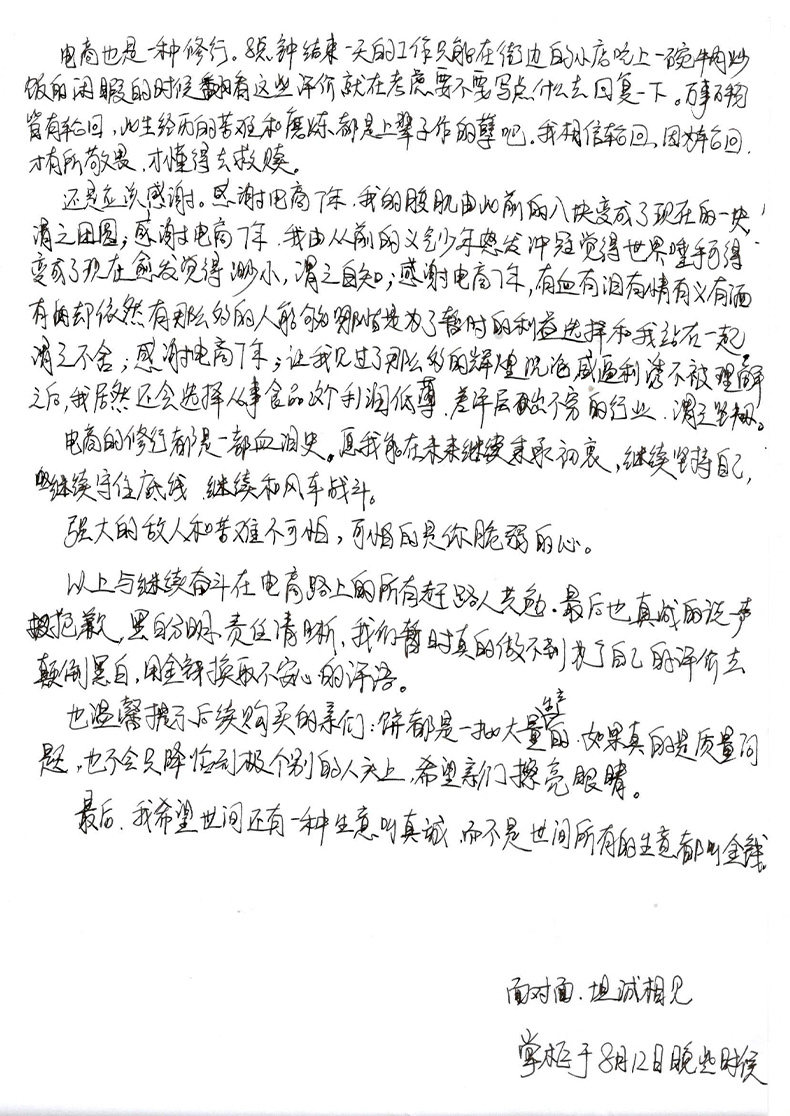 电商也是一种修行。8点钟结束一天的工作只能在街边的小店吃上一碗牛肉炒
饭的闲暇的时候翻看这些评价就在考虑要不要写点什么去回复一下。万事万物
皆有轮回，此生经历的苦难和磨炼都是上辈子作的孽吧。我相信轮回、因为轮回，
才有所敬畏，才懂得去救赎。
还是应该感谢。感谢电商7年，我的腹肌由此前的八块变成了现在的一块，
谓之团圆；感谢电商7年，我由从前的义气少年怒发冲冠觉得世界唾手可得
变成了现在愈发觉得渺小，谓之自知；感谢电商7年，有血有泪有情有义有酒
有肉却依然有那么多的人能够哪怕是为了暂时的利益选择和我站在一起
谓之不舍；感谢电商7年；让我见过了那么多的辉煌沉沦威逼利诱不被理解
之后，我居然还会选择从事食品这个利润低薄、差评层出不穷的行业，谓之坚韧。
电商的修行都是一部血泪史。愿我能在未来继续秉承初衷，继续坚持自己，
继续守住底线 继续和风车战斗。
强大的敌人和苦难不可怕，可怕的是你脆弱的心。
以上与继续奋斗在电商路上的所有赶路人共勉。最后也真诚的说一声
抱歉，黑白分明、责任清晰，我们暂时真的做不到为了自己的评价去
颠倒黑白，用金钱换取不安心的评语。
也温馨提示后续购买的亲们：饼都是一批大量生产的，如果真的是质量问
题，也不会只降临到极个别的人头上，希望亲们擦亮眼睛。
最后，我希望世间还有一种生意叫真诚，而不是世间所有的生意都叫金钱。
面对面、坦诚相见
掌柜于8月12日晚些时候